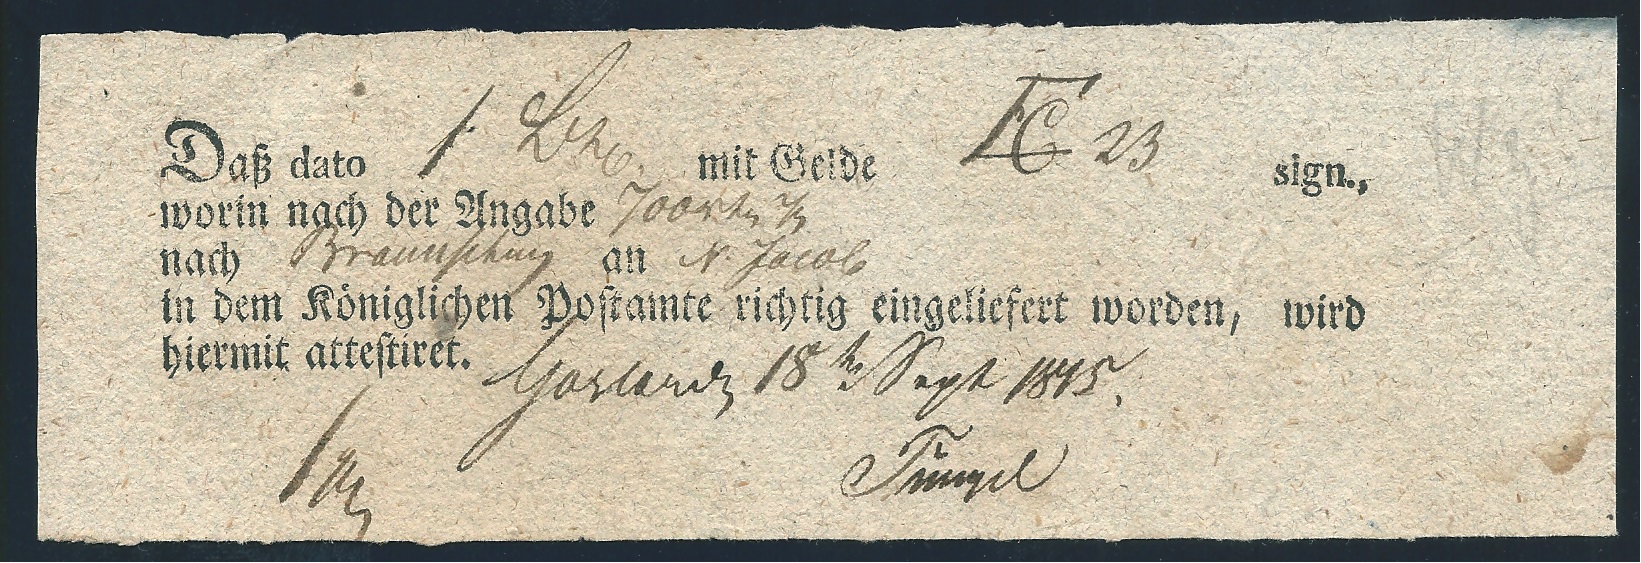 Daß dato 1 mit Gelde 23 sign.,
worin nach der Angabe 700
nach Braunschweig an N. Jacob
in dem Königlichen Postamte richtig eingeliefert worden, wird
hiermit attestiret.
18 Sept 1845.
Tüngel